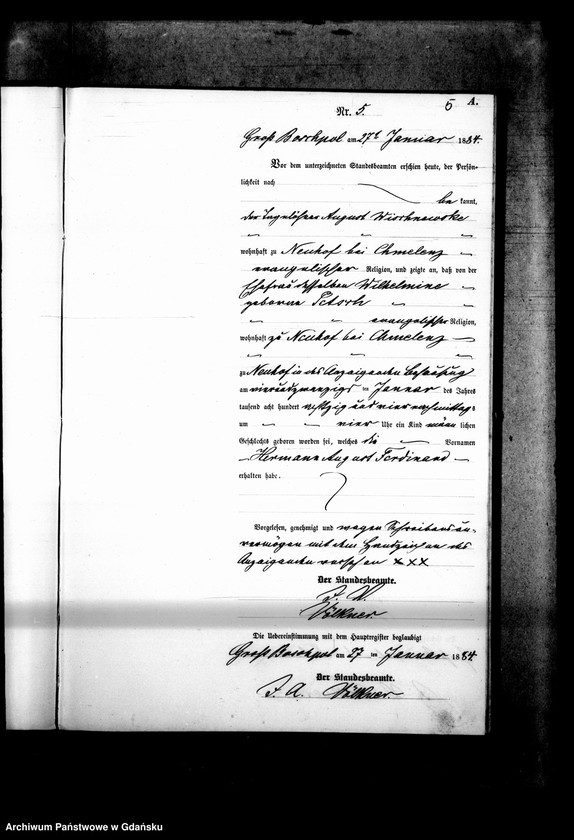 5 A.
Nr. 5.
Groß Boschpol am 27ten Januar 1884.
Vor dem unterzeichneten Standesbeamten erschien heute, der Persön-
lichkeit nach
be kannt,
der Tagelöhner August
wohnhaft zu Neuhof bei Chmelenz
evangelischer Religion, und zeigte an, daß von der
Ehefrau desselben Wilhelmine
geborene
evangelischer Religion,
wohnhaft zu Neuhof bei Chmelenz
zu Neuhof in des Anzeigenden Behausung
am vierundzwanzigsten Januar des Jahres
tausend acht hundert achtzig und vier nachmittags
um vier Uhr ein Kind männ lichen
Geschlechts geboren worden sei, welches die Vornamen
Hermann August Ferdinand
erhalten habe.
Vorgelesen, genehmigt und wegen Schreibensun-
vermögen mit dem Handzeichen des
Anzeigenden versehen XXX
Der Standesbeamte.
Völkner.
Die Uebereinstimmung mit dem Hauptregister beglaubigt
Groß Boschpol am 27 ten Januar 1884
Der Standesbeamte.
Völkner.
Archiwum Państwowe w Gdańsku